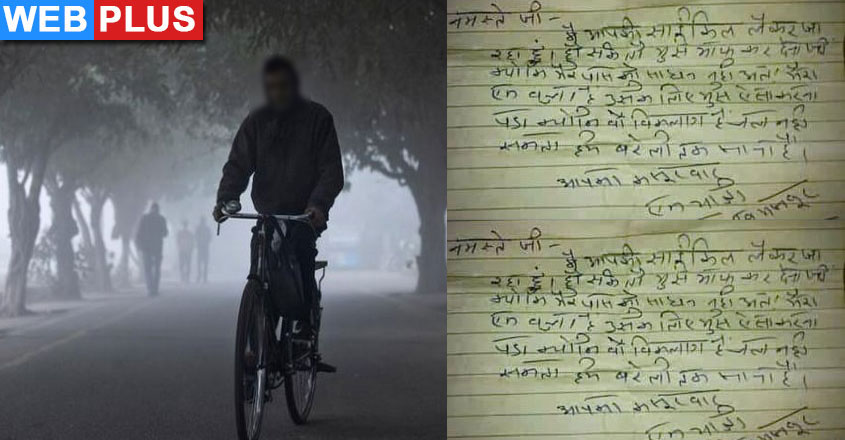 WEB PLUS
नमस्ते जी -
मै आपकी साईकिल लेकर जा
रहा हूं। हो सके तो मुझे माफ कर देना जी
क्योकि मेरे पास को साधन नही अतः मेरा
एक बच्चा है उसके लिए मुझे ऐसा करना
पडा क्योकि वो विकलांग है चल नही
सकता हमे बरेली तक जाना है।
आपका कसूरवार
एक यात्री
नमस्ते जी -
मै आपकी साईकिल लेकर जा
रहा हूं। हो सके तो मुझे माफ कर देना जी
क्योकि मेरे पास को साधन नही अतः मेरा
एक बच्चा है उसके लिए मुझे ऐसा करना
पडा क्योकि वो विकलांग है चल नही
सकता हमे बरेली तक जाना है।
आपका कसूरवार
एक यात्री